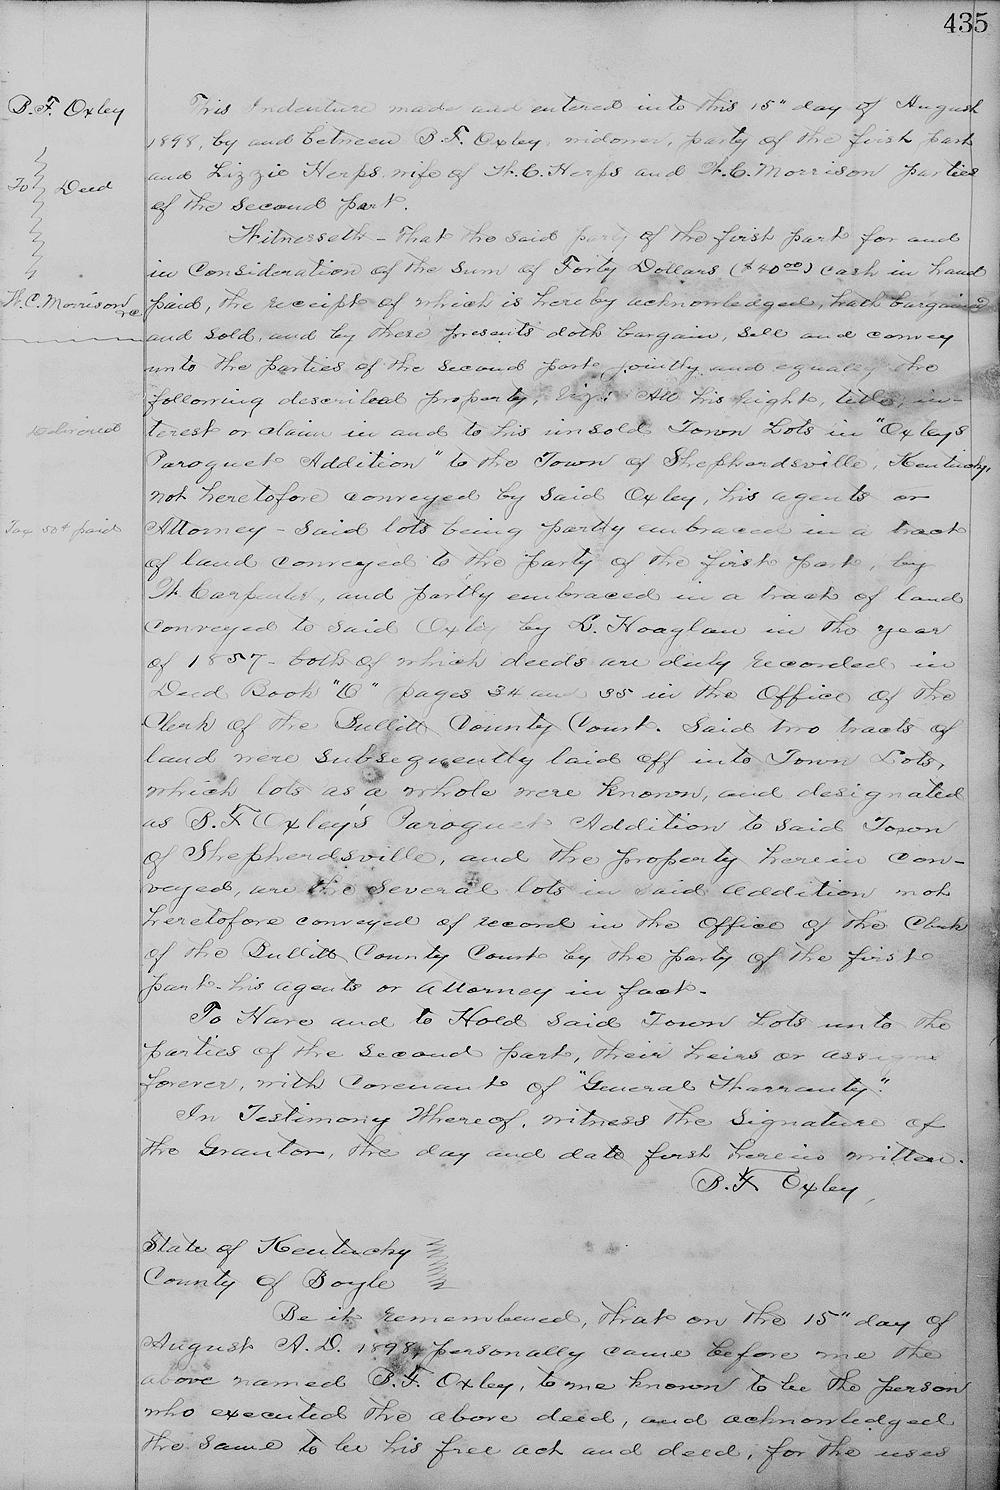 435
B. F. Oxley
To Deed
W. C. Morrison &c
Delivered
Tax 50¢ paid
This Indenture made and entered into this 15" day of August
1898, by and between B. F. Oxley, widower, party of the first part
and Lizzie Herps, wife of W. C. Herps and W. C. Morrison parties
of the second part.
Witnesseth - That the said party of the first part for and
in Consideration of the sum of Forty Dollars ($40.00) cash in hand
paid, the receipt of which is hereby acknowledged, hath bargained
and sold, and by these presents doth bargain, sell and convey
unto the parties of the second part, jointly and equally the
following described property, viz: All his right, title, in-
terest or claim in and to his unsold Town Lots in "Oxleys
Paroquet Addition" to the Town of Shepherdsville, Kentucky,
not heretofore conveyed by said Oxley, his agents or
Attorney - Said lots being partly embraced in a tract
of land conveyed to the party of the first part, by
W Carpenter, and partly embraced in a tract of land
conveyed to said Oxley by L. Hoaglan in the year
of 1857 - both of which deeds are duly recorded in
Deed Book "O" pages 34 and 35 in the Office of the
Clerk of the Bullitt County Court. Said two tracts of
land were subsequently laid off into Town Lots,
which lots as a whole were known, and designated
as B. F Oxley's Paroquet Addition to said Town
of Shepherdsville, and the property herein con-
veyed, are the several lots in said addition not
heretofore conveyed of record in the Office of the Clerk
of the Bullitt County Court by the party of the first
part - his agents or Attorney in fact -
To Have and to Hold said Town Lots unto the
parties of the second part, their heirs or assigns
forever, with Covenant of "General Warranty."
In Testimony Whereof, witness the signature of
the Grantor, the day and date first herein written.
B. F Oxley,
State of Kentucky
County of Boyle
Be it remembered, that on the 15" day of
August A. D. 1898, personally came before me the
above named B. F. Oxley, to me known to be the person
who executed the above deed, and acknowledged
the same to be his free act and deed, for the uses